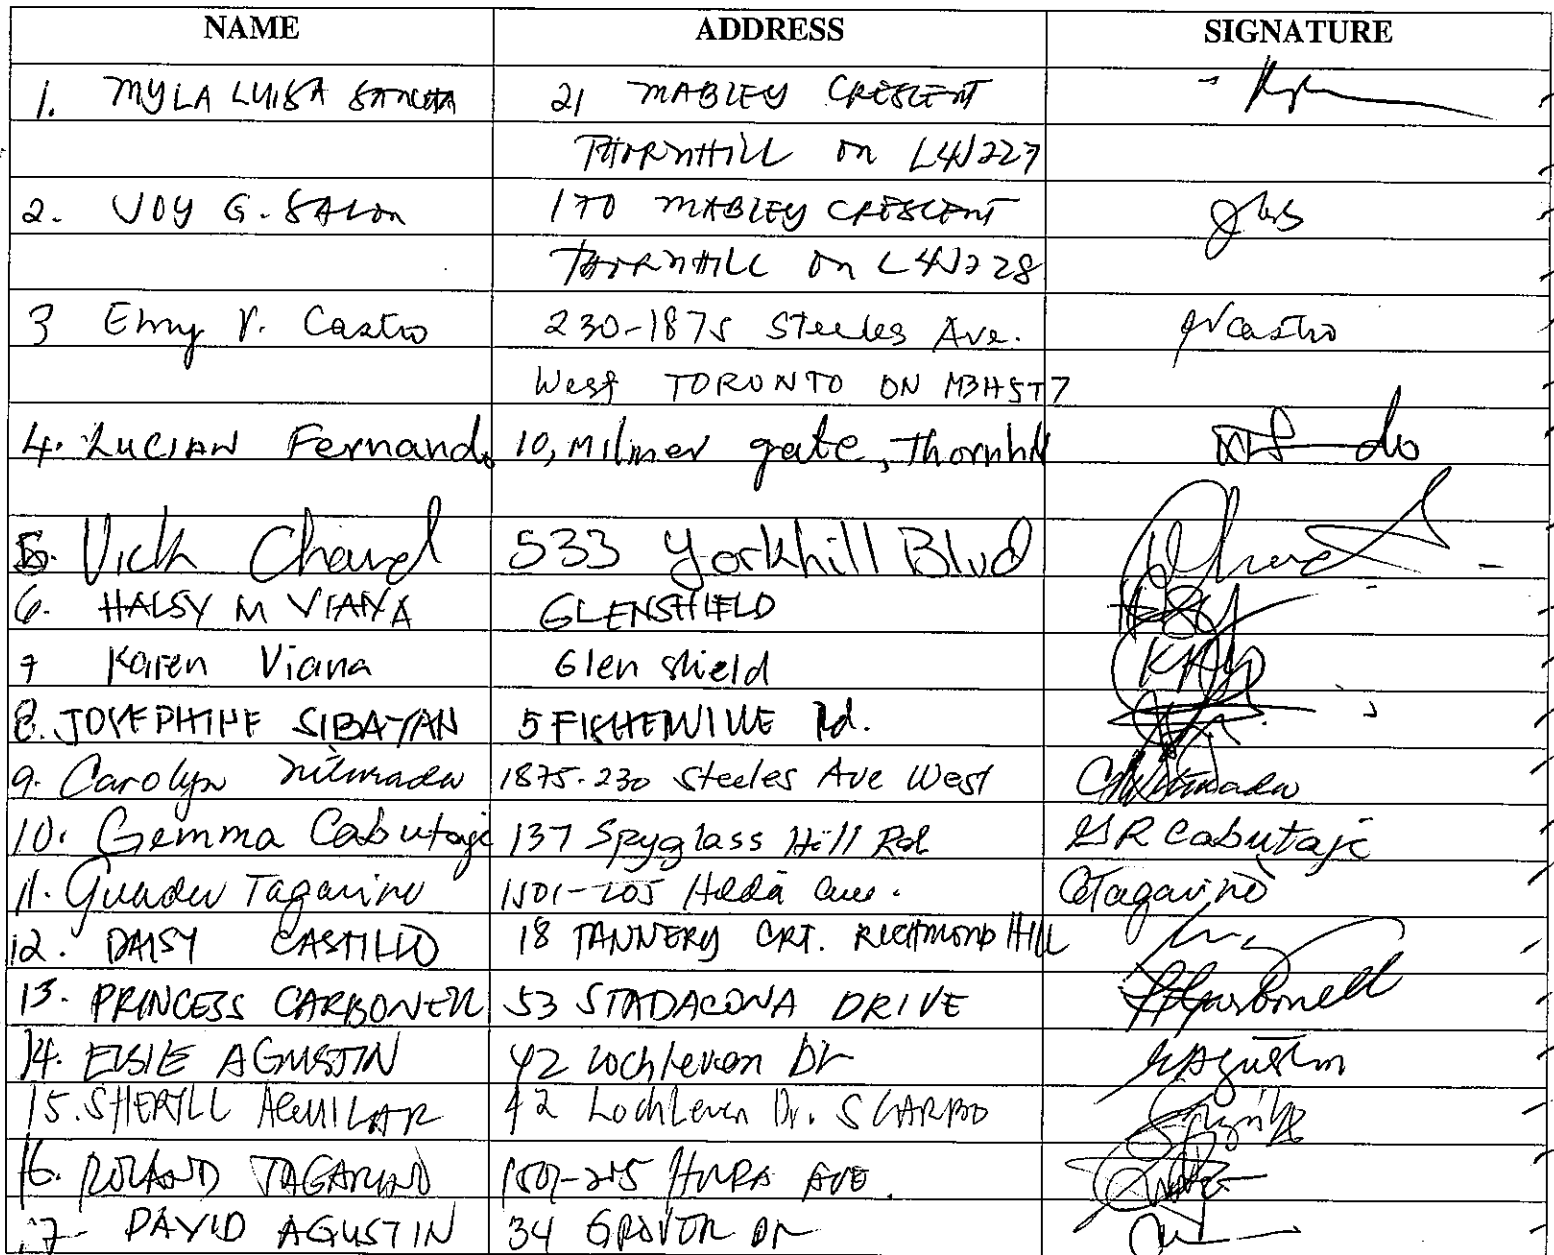 NAME ADDRESS SIGNATURE
1. MYLA LUISA 21 MABLEY CRESCENT
THORNHILL ON L4J2Z7
2. JOY G. SALON 170 MABLEY CRESCENT
THORNHILL ON L4J2Z8
3 Emy V. Castro 230-1875 Steeles Ave. Castro
West TORONTO ON M3H5T7
4. LUCIAN Fernando 10, Milner gate, Thornhill
5. Chand 533 Yorkhill Blvd
6. HALSY M VIANA GLENSHIELD
7 Karen Viana Glen shield
8. JOSEPHINE SIBAYAN 5 Rd.
9. Carolyn 1875-230 Steeles Ave West
10. Gemma Cabutaje 137 Spyglass Hill Rd GR Cabutaje
11. Tagarino 1501-205 Hilda ave. GTagarino
12. DAISY CASTILLO 18 TANNERY CRT. RICHMOND HILL
13. PRINCESS CARBONELL 53 STADACONA DRIVE
14. ELSIE AGUSTIN 42 Lochleven Dr EAgustin
15. SHERYLL AGUILAR 42 Lochleven Dr. SCARBO
16. ROLAND TAGARINO AVE.
17- DAVID AGUSTIN 34 DR